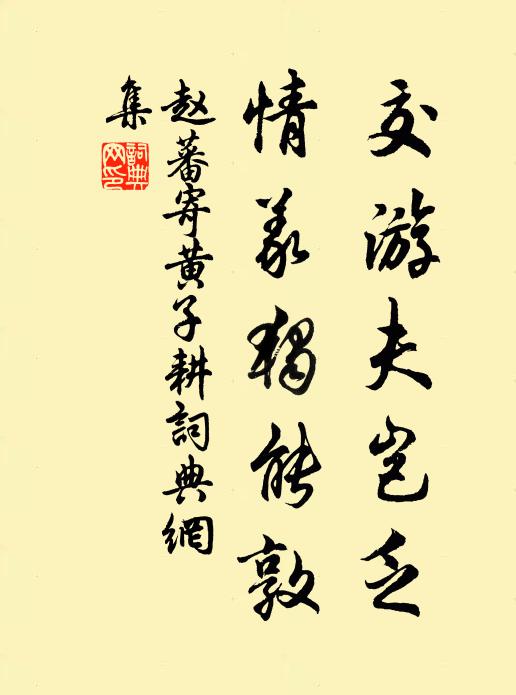 交游夫岂乏
情义独能敦
赵蕃寄黄子耕詞典網
集
詞典網印